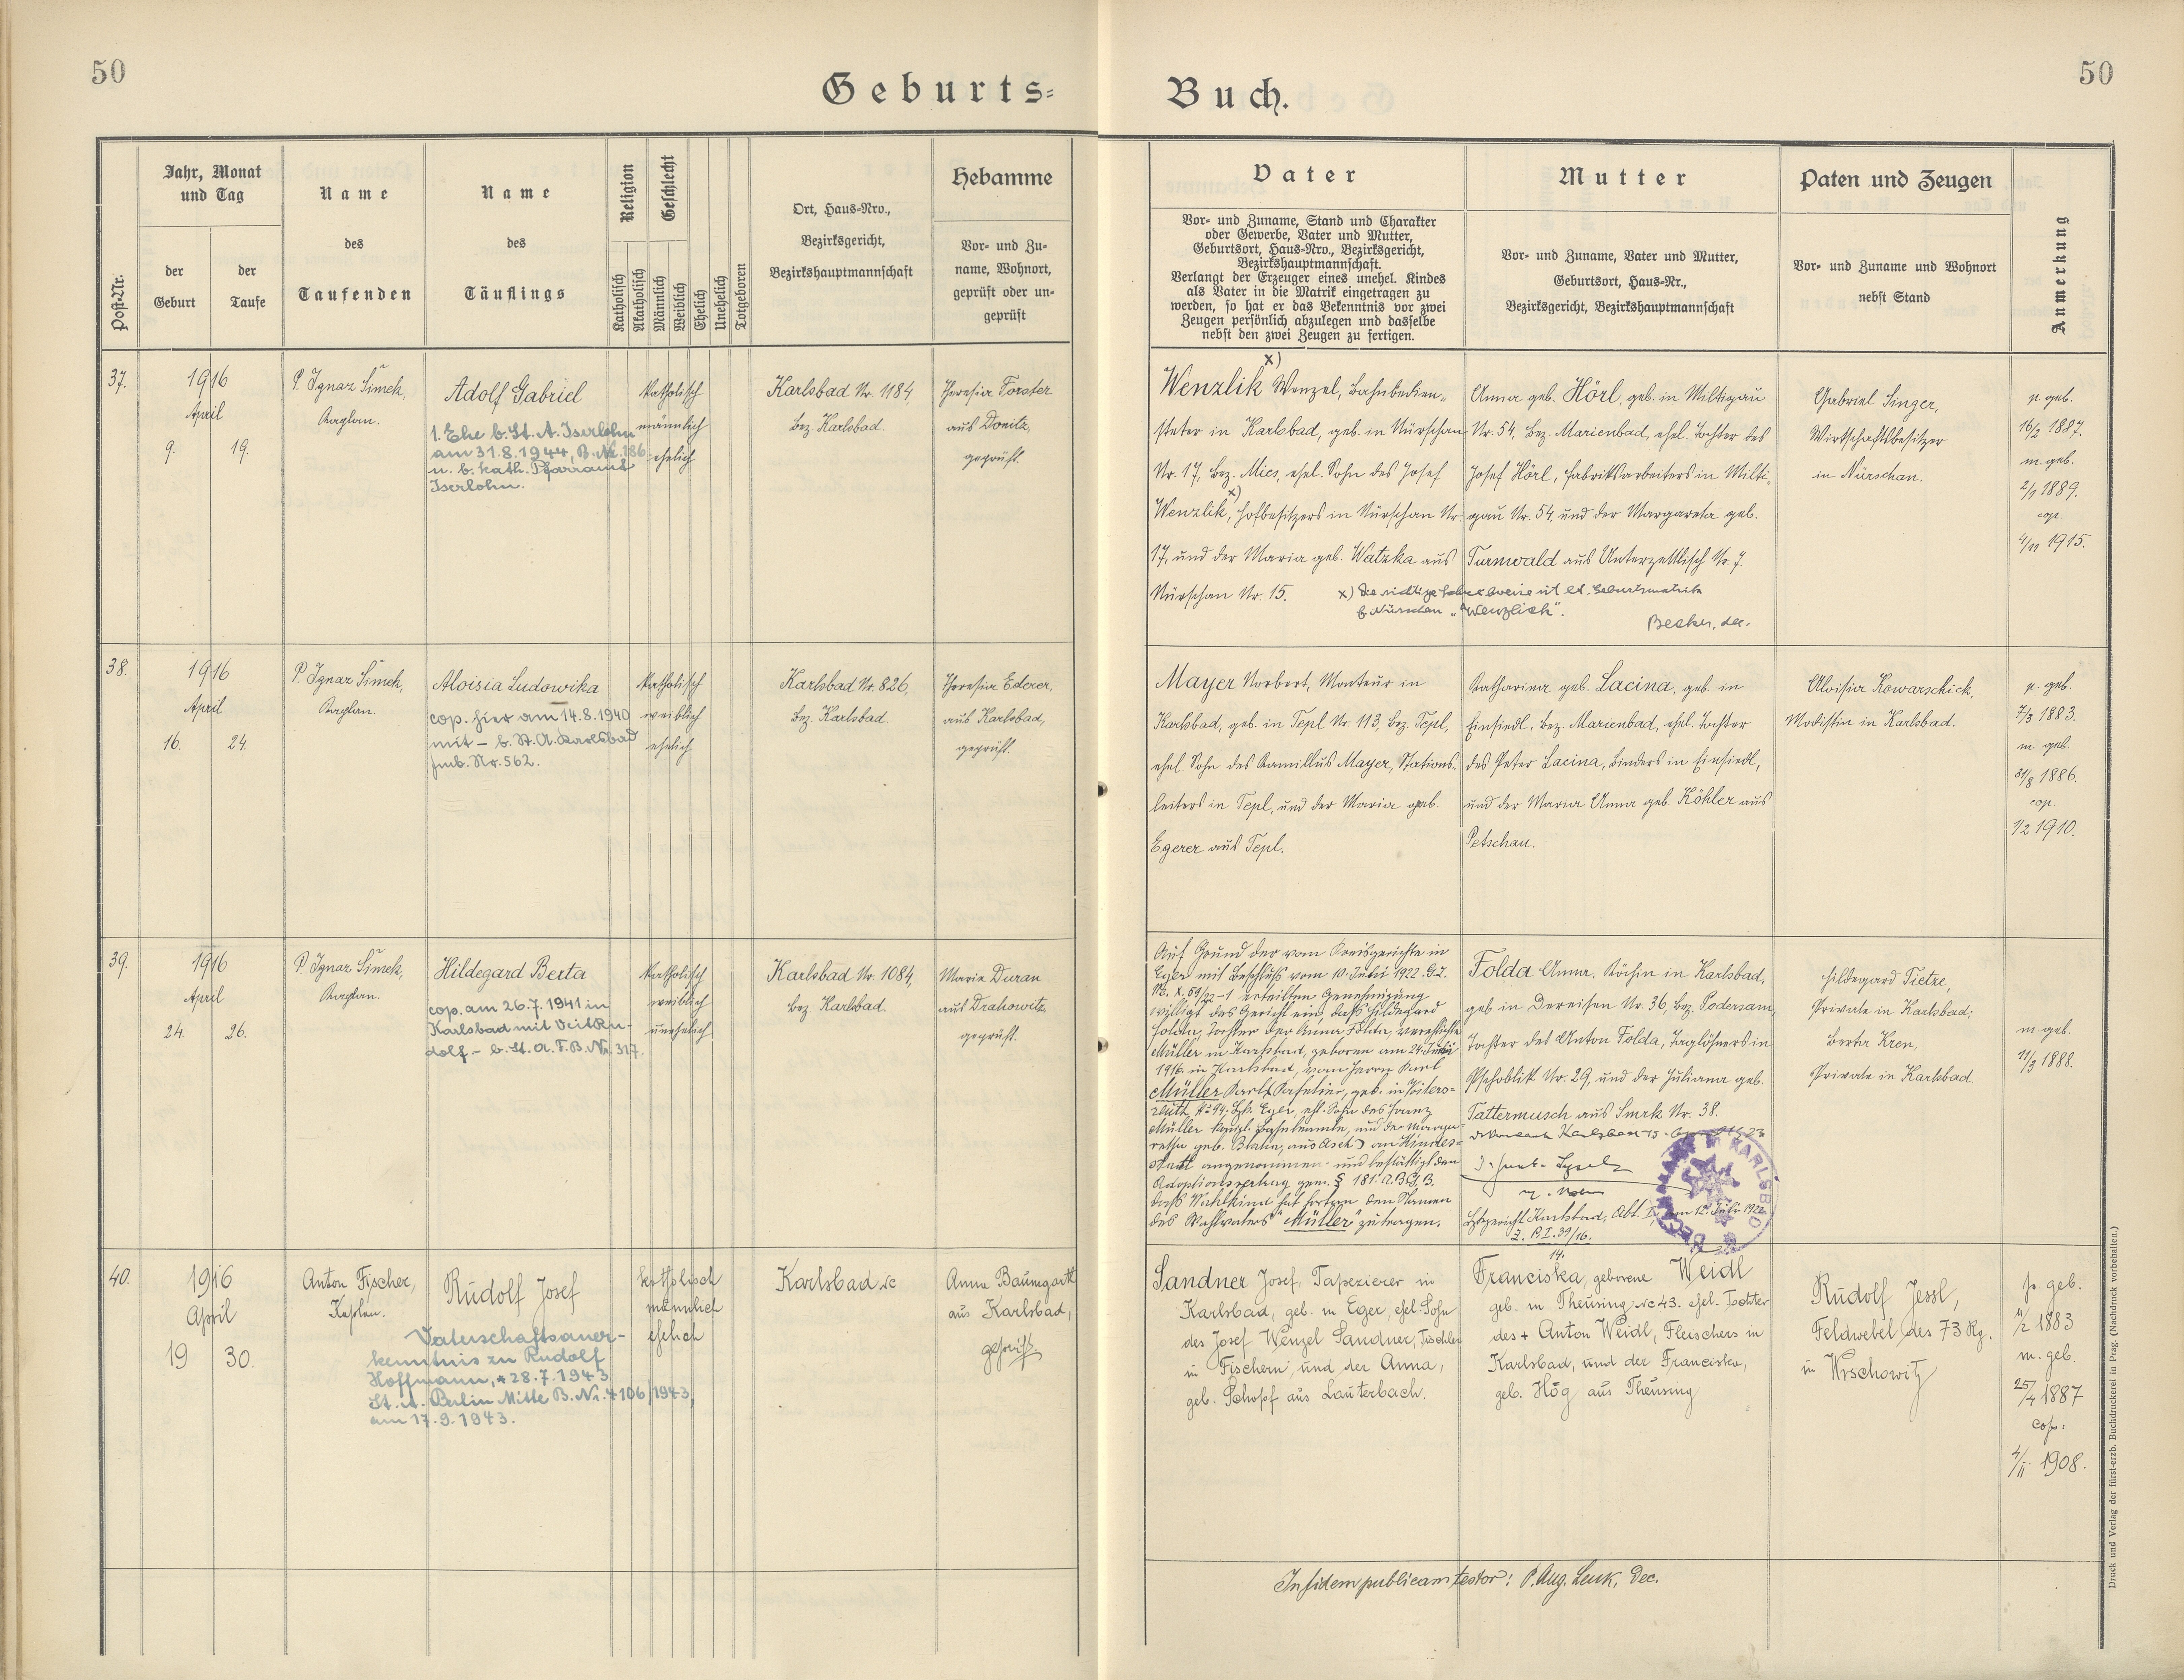 50
Geburts=
Buch.
50
Post-Nr.
Jahr, Monat
und Tag
der
Geburt
der
Taufe
Name
des
Taufenden
Name
des
Täuflings
Religion
Katholisch
Akatholisch
Geschlecht
Männlich
Weiblich
Ehelich
Unehelich
Totgeboren
Ort, Haus-Nro.,
Bezirksgericht,
Bezirkshauptmannschaft
Hebamme
Vor- und Zu-
name, Wohnort,
geprüft oder un-
geprüft
Vater
Vor- und Zuname, Stand und Charakter
oder Gewerbe, Vater und Mutter,
Geburtsort, Haus-Nro., Bezirksgericht,
Bezirkshauptmannschaft.
Verlangt der Erzeuger eines unehel. Kindes
als Vater in die Matrik eingetragen zu
werden, so hat er das Bekenntnis vor zwei
Zeugen persönlich abzulegen und dasselbe
nebst den zwei Zeugen zu fertigen.
Mutter
Vor- und Zuname, Vater und Mutter,
Geburtsort, Haus-Nr.,
Bezirksgericht, Bezirkshauptmannschaft
Paten und Zeugen
Vor- und Zuname und Wohnort
nebst Stand
Anmerkung
37.
1916
April
9. 19.
P. Ignaz Šimek,
Kaplan.
Adolf Gabriel
1. Ehe b. St. A. Iserlohn
am 31.8.1944, B. Nr. 186
u. b. kath. Pfarramt
Iserlohn.
katholisch
männlich
ehelich
Karlsbad Nr. 1184
Bez. Karlsbad.
Theresia Forster
aus Donitz,
geprüft.
x)
Wenzlik Wenzel, Bahnbedien-
steter in Karlsbad, geb. in Nürschan
Nr. 17, Bez. Mies, ehel. Sohn des Josef
x)
Wenzlik, Hofbesitzers in Nürschan Nr.
17, und der Maria geb. Watzka aus
Nürschan Nr. 15.
x) Die richtige Schreibweise ist lt. Geburtsmatrik
"Wenzlich".
Becker, Dec.
Anna geb. Hörl, geb. in Miltigau
Nr. 54, Bez. Marienbad, ehel. Tochter des
Josef Hörl, Fabriksarbeiters in Milti-
gau Nr. 54, und der Margareta geb.
Turnwald aus Unterzettlisch Nr. 7.
Gabriel Singer,
Wirtschaftsbesitzer
in Nürschan.
p. geb.
16/2 1887.
m. geb.
2/1 1889.
cop.
4/11 1915.
38.
1916
April
16. 24.
P. Ignaz Šimek,
Kaplan.
Aloisia Ludowika
cop. hier am 14.8.1940
mit – b. St. A. Karlsbad
Fmb. Nr. 562.
katholisch
weiblich
ehelich
Karlsbad Nr. 826,
Bez. Karlsbad.
Theresia Ederer,
aus Karlsbad,
geprüft.
Mayer Norbert, Monteur in
Karlsbad, geb. in Tepl Nr. 113, Bez. Tepl,
ehel. Sohn des Kamillus Mayer, Stations-
leiters in Tepl, und der Maria geb.
Egerer aus Tepl.
Katharina geb. Lacina, geb. in
Einsiedl, Bez. Marienbad, ehel. Tochter
des Peter Lacina, Binders in Einsiedl,
und der Maria Anna geb. Köhler aus
Petschau.
Aloisia Kowarschick,
Modistin in Karlsbad.
p. geb.
7/3 1883.
m. geb.
31/8 1886.
cop.
1/2 1910.
39.
1916
April
24. 26.
P. Ignaz Šimek,
Kaplan.
Hildegard Berta
cop. am 26.7.1941 in
Karlsbad mit Veit Ru-
dolf – b. St. A. F. B. Nr. 317.
katholisch
weiblich
unehelich
Karlsbad Nr. 1084,
Bez. Karlsbad.
Marie Duran
aus Drahowitz,
geprüft.
Auf Grund der vom Kreisgerichte in
Eger mit Beschluss vom 10. Juli 1922 G.Z.
Nc. X. 59/22-1 erteilten Genehmigung
willigt das Gericht ein, daß Hildegard
Folda, Tochter der Anna Folda, verehelichte
Müller in Karlsbad, geboren am 24. Juli
1916 in Karlsbad, vom Herrn Karl
Müller
Müller
geb. Blahn, aus Asch) an Kindes-
statt angenommen und bestättigt den
Adoptionsvertrag gem. § 181. A.B.G.B.
dass Wahlkind hat fortan den Namen
des Wahlvaters "Müller" zu tragen.
Folda Anna, Köchin in Karlsbad,
geb. in Dereisen Nr. 36, Bez. Podersam,
Tochter des Anton Folda, Taglöhners in
Pschoblik Nr. 29, und der Juliana geb.
Tattermusch aus Smrk Nr. 38.
Bezgericht Karlsbad, Abt. I, am 12. Juli 1922
Z. P. I. 39/16.
14.
KARLSBAD
Hildegard Tietze,
Private in Karlsbad;
Berta Kren,
Private in Karlsbad
m. geb.
11/3 1888.
40.
1916
April
19 30.
Anton Fischer,
Kaplan.
Rudolf Josef
Vaterschaftsaner-
kenntnis zu Rudolf
Hoffmann, *28.7.1943
St. A. Berlin Mitte B. Nr. 4106/1943,
am 17.9.1943.
katholisch
männlich
ehelich
Karlsbad Nc
Anna Baumgartl
aus Karlsbad,
geprüft
Sandner Josef, Tapezierer in
Karlsbad, geb. in Eger, ehel. Sohn
des Josef Wenzel Sandner, Tischler
in Fischern, und der Anna,
geb. Schopf aus Lauterbach.
Franciska, geborene Weidl
geb. in Theusing Nc 43. ehel. Tochter
des + Anton Weidl, Fleischers in
Karlsbad, und der Franciska,
geb. Hög aus Theusing
Rudolf Jessl,
Feldwebel des 73 Rg.
in Wrschowitz
p. geb.
1883
m. geb.
25/4 1887
cop:
4/11 1908.
In fidem publicam testor: P. Aug. Lenk, Dec.
Druck und Verlag der fürst-erzb. Buchdruckerei in Prag. (Nachdruck vorbehalten.)